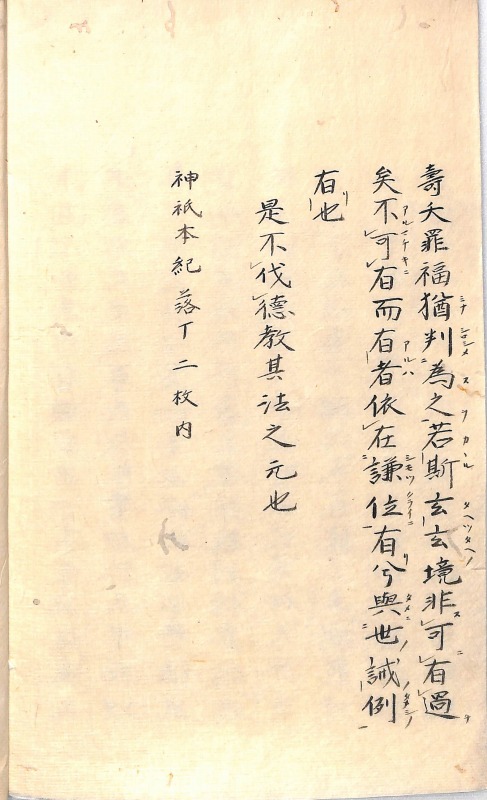 壽夭罪福猶判為之若斯玄玄境非可有過
矣不可有而有者依在謙位有兮與世誡例
有也
是不伐德教其法之元也
神祇本紀落丁二枚内